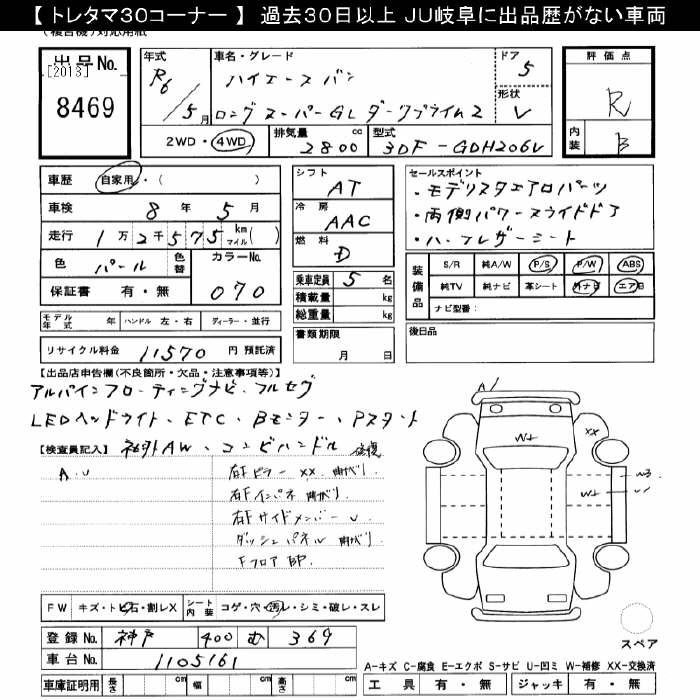 【 トレタマ30コーナー 】 過去30日以上 JU岐阜に出品歴がない車両
(複合機) 対応用紙
出品No. [2013] 8469
年式 R6/5月
車名・グレード ハイエースバン
ロングスーパーGL ダークプライム2
ドア 5
形状 V
評価点 R
内装 B
2WD・4WD 排気量 2800 cc 型式 3DF-GDH206V
車歴 自家用・( )
車検 8年 5月
走行 1万2千575 km マイル( )
色 パール 色替 カラーNo. 070
保証書 有・無
シフト AT
冷房 AAC
燃料 D
乗車定員 5名
積載量 kg
総重量 kg
書類期限 月 日
セールスポイント
・モデリスタエアロパーツ
・両側パワースライドドア
・ハーフレザーシート
装備品 S/R 純A/W P/S P/W ABS
純TV 純ナビ 革シート 外ナビ エアB
ナビ型番:
モデル年式 年 ハンドル 左・右 ディーラー・並行
後日品
リサイクル料金 11570 円 預託済
【出品店申告欄(不良箇所・欠品・注意事項等)】
アルパインフローティングナビ・フルセグ
LEDヘッドライト・ETC・Bモニター・Pスタート
【検査員記入】 社外AW・コンビハンドル
修復
A.U
右Fピラー XX 曲がり
右Fインパネ 曲がり
右Fサイドメンバー U
ダッシュパネル 曲がり
Fフロア BP
A1
W1
XX
W3
W2
FW キズ・トビ石・割レX シート内装 コゲ・穴・汚レ・シミ・破レ・スレ
登録No. 神戸 400 む 369
車台No. 1105161
車庫証明用 長さ cm 幅 cm 高さ cm
スペア
A-キズ C-腐食 E-エクボ S-サビ U-凹ミ W-補修 XX-交換済
工具 有・無 ジャッキ 有・無